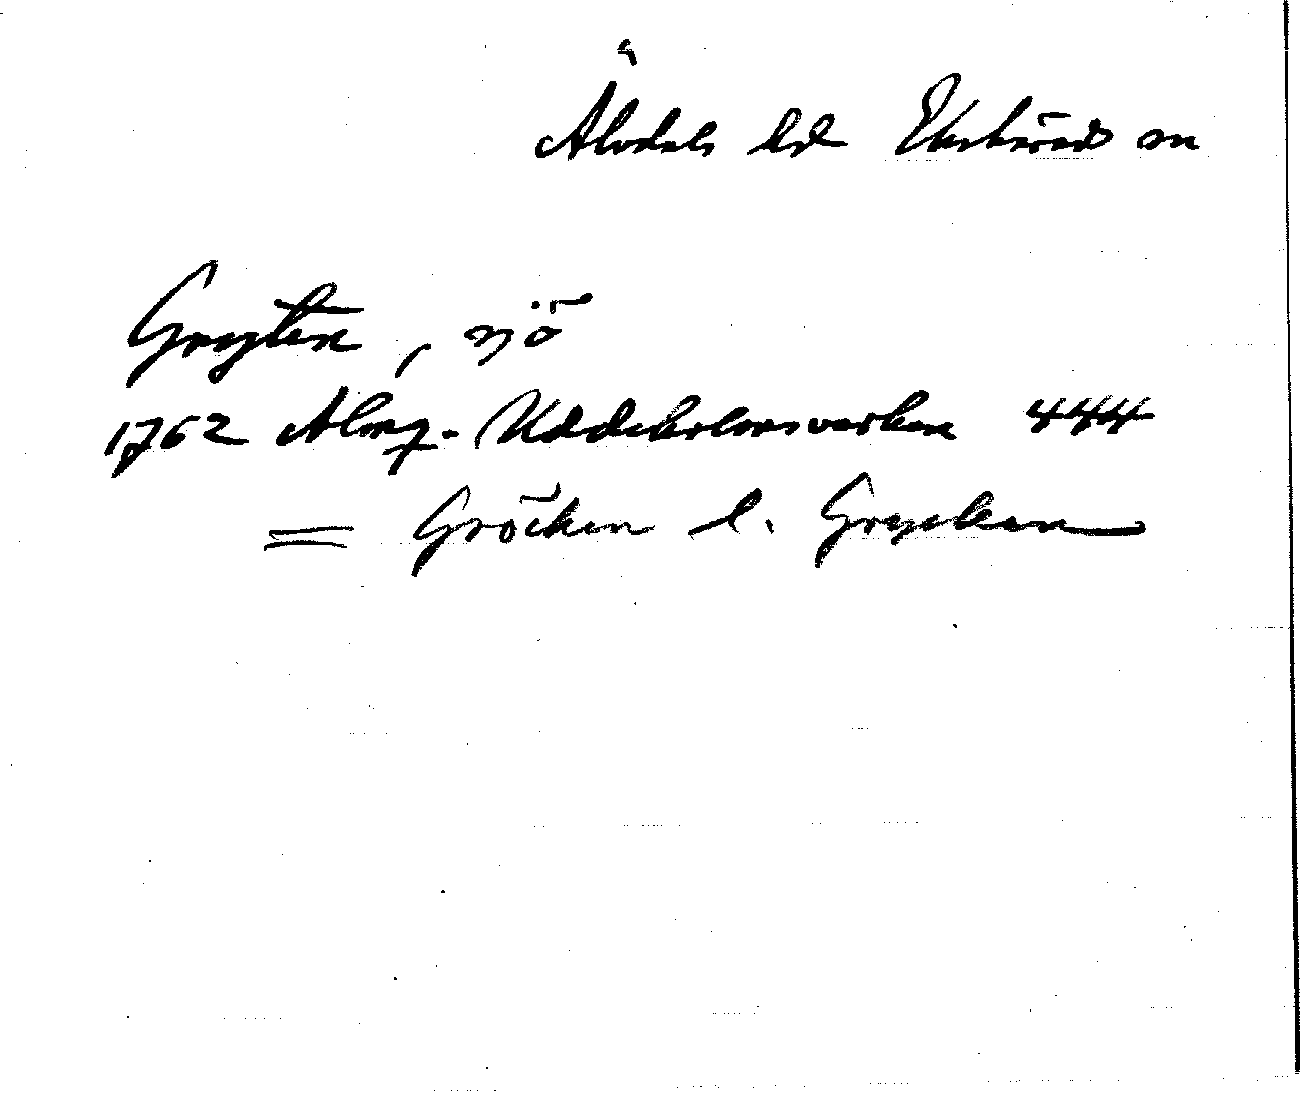 Älvdals hd Ekshärad sn
Gryten, sjö
1762 Almq. Uddeholmsverken 444
= Gröcken l. Grycken